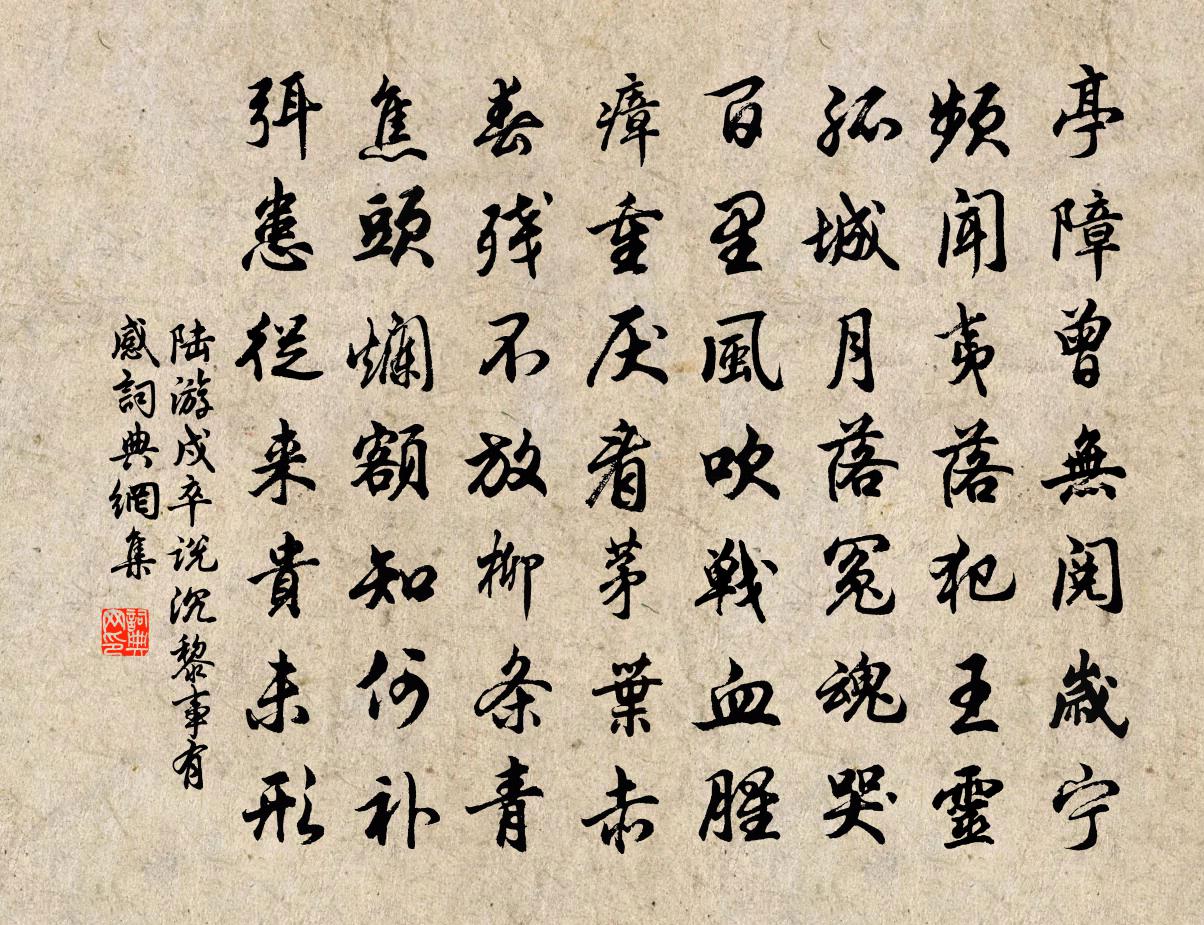 亭障曾無閱歲宁
頻聞夷落犯王靈
孤城月落冤魂哭
百里風吹戰血腥
瘴重厌看茅葉赤
春殘不放柳条青
焦頭爛額知何补
弭患從来貴未形
陆游戍卒说沉黎事有
感詞典網集
詞典
网印